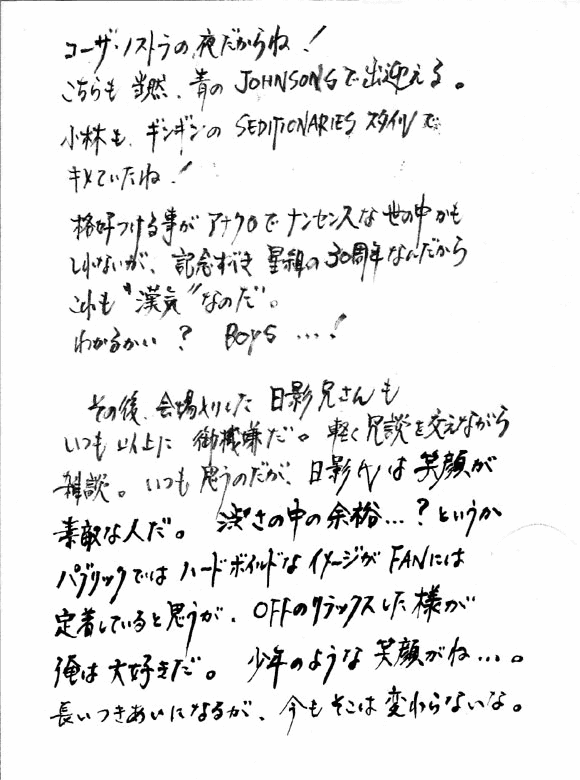 コーザ・ノストラの夜だからね!
こちらも当然、青のJOHNSONSで出迎える。
小林も、ギンギンのSEDITIONARIESスタイルで
キメていたね!
格好つける事がアナクロでナンセンスな世の中かも
しれないが、記念すべき星組の30周年なんだから
これも“漢気”なのだ。
わかるかい? BOYS…!
その後、会場入りした日影兄さんも
いつも以上に御機嫌だ。軽く冗談を交えながら
雑談。いつも思うのだが、日影氏は笑顔が
素敵な人だ。渋さの中の余裕…?というか
パブリックではハードボイルドなイメージがFANには
定着していると思うが、OFFのリラックスした様が
俺は大好きだ。少年のような笑顔がね…。
長いつきあいになるが、今もそこは変わらないな。